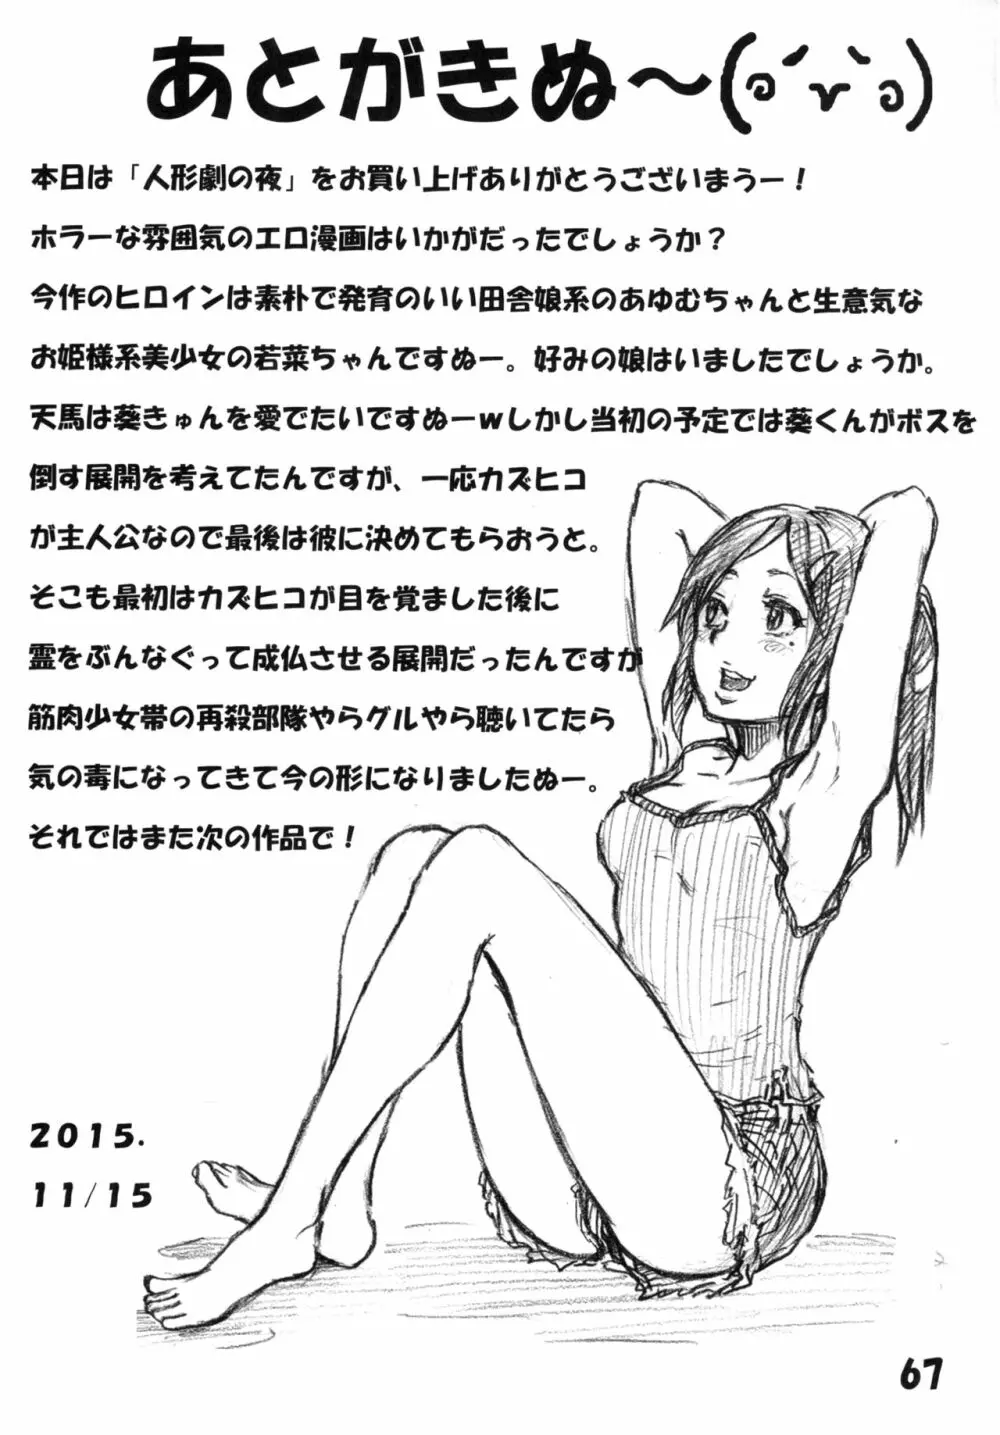 あとがきぬ～(ʚ´v`ɞ)
本日は「人形劇の夜」をお買い上げありがとうございまうー！
ホラーな雰囲気のエロ漫画はいかがだったでしょうか？
今作のヒロインは素朴で発育のいい田舎娘系のあゆむちゃんと生意気な
お姫様系美少女の若菜ちゃんですぬー。好みの娘はいましたでしょうか。
天馬は葵きゅんを愛でたいですぬーｗしかし当初の予定では葵くんがボスを
倒す展開を考えてたんですが、一応カズヒコ
が主人公なので最後は彼に決めてもらおうと。
そこも最初はカズヒコが目を覚ました後に
霊をぶんなぐって成仏させる展開だったんですが
筋肉少女帯の再殺部隊やらグルやら聴いてたら
気の毒になってきて今の形になりましたぬー。
それではまた次の作品で！
2015.
11/15
67